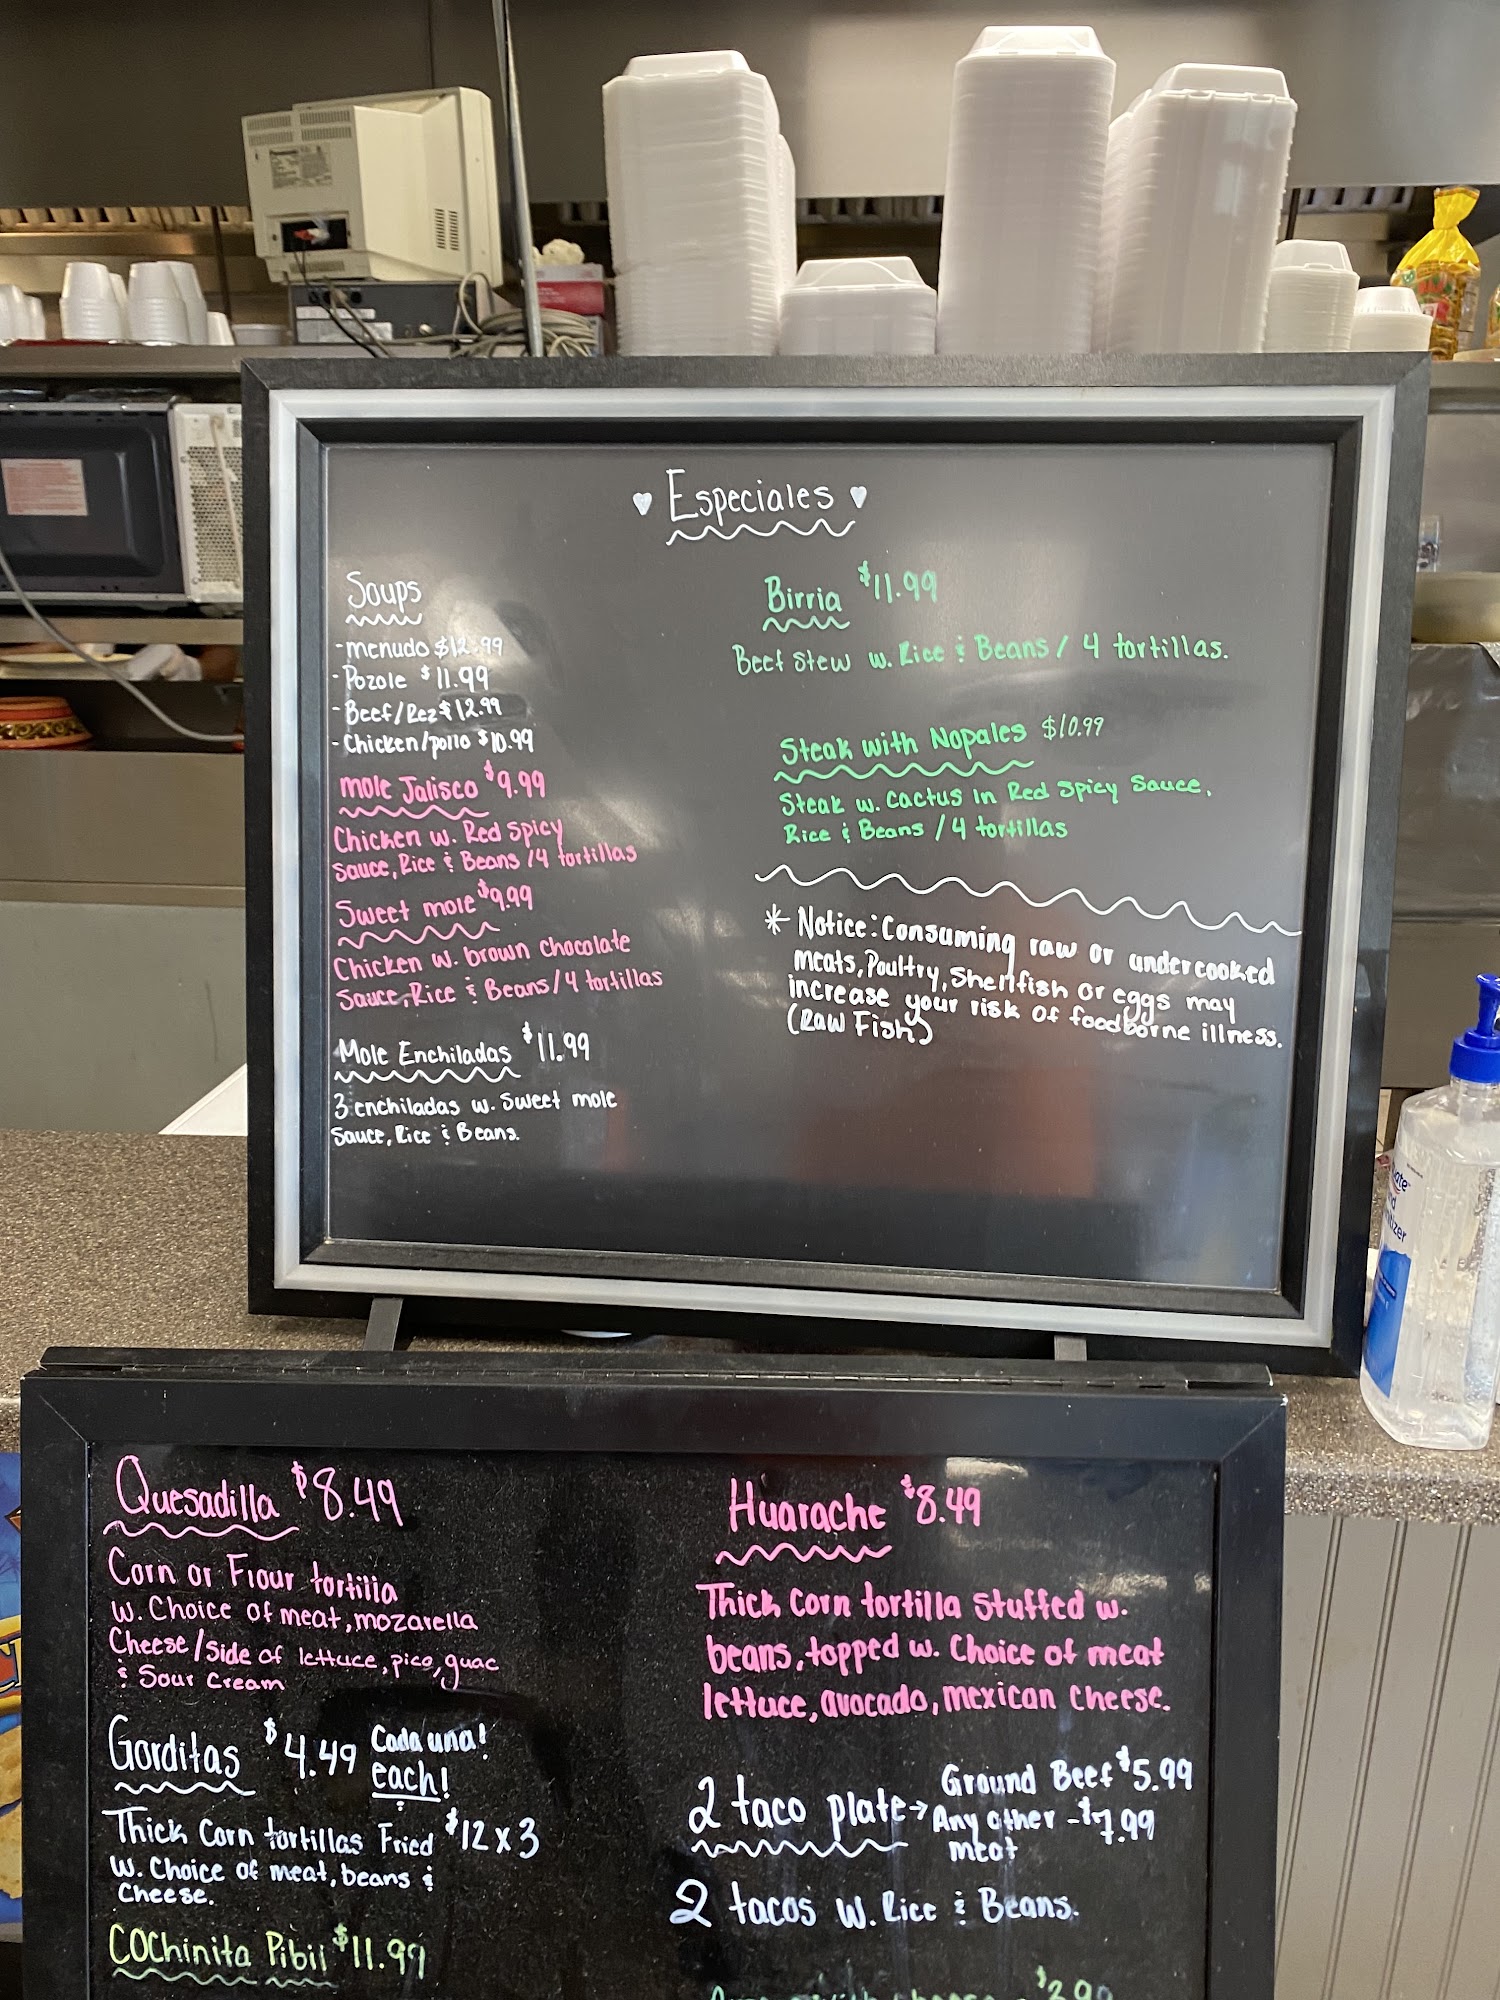 Especiales
Soups
- menudo $12.99
- Pozole $11.99
- Beef/Rez $12.99
- Chicken/pollo $10.99
Mole Jalisco $9.99
Chicken w. Red Spicy
Sauce, Rice & Beans /4 tortillas
Sweet mole $9.99
Chicken w. brown chocolate
Sauce, Rice & Beans/4 tortillas
Mole Enchiladas $11.99
3 enchiladas w. Sweet mole
Sauce, Rice & Beans.
Birria $11.99
Beef Stew w. Rice & Beans/ 4 tortillas.
Steak with Nopales $10.99
Steak w. Cactus in Red Spicy Sauce,
Rice & Beans /4 tortillas
* Notice: Consuming raw or undercooked
meats, Poultry, Shellfish or eggs may
increase your risk of foodborne illness.
(Raw Fish)
Quesadilla $8.49
Corn or Flour tortilla
w. Choice of meat, mozarella
Cheese/Side of lettuce, pico, guac
& Sour Cream
Gorditas $4.49 Cada una!
each!
Thick Corn tortillas Fried $12 x 3
w. Choice of meat, beans &
Cheese.
Cochinita Pibil $11.99
Huarache $8.49
Thick Corn tortilla Stuffed w.
beans, topped w. Choice of meat
lettuce, avocado, Mexican Cheese.
2 taco plate→ Ground Beef $5.99
Any other - $7.99
meat
2 tacos w. Rice & Beans.